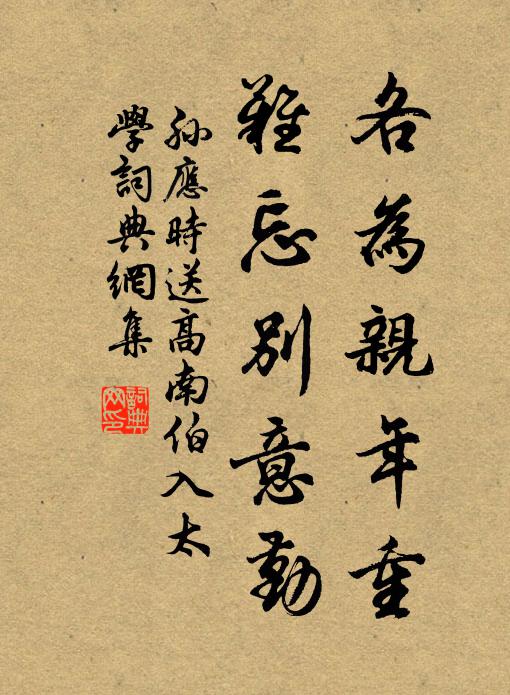 各為親年重
難忘別意勤
孫應時送高南伯入太
學詞典網集
詞典網印